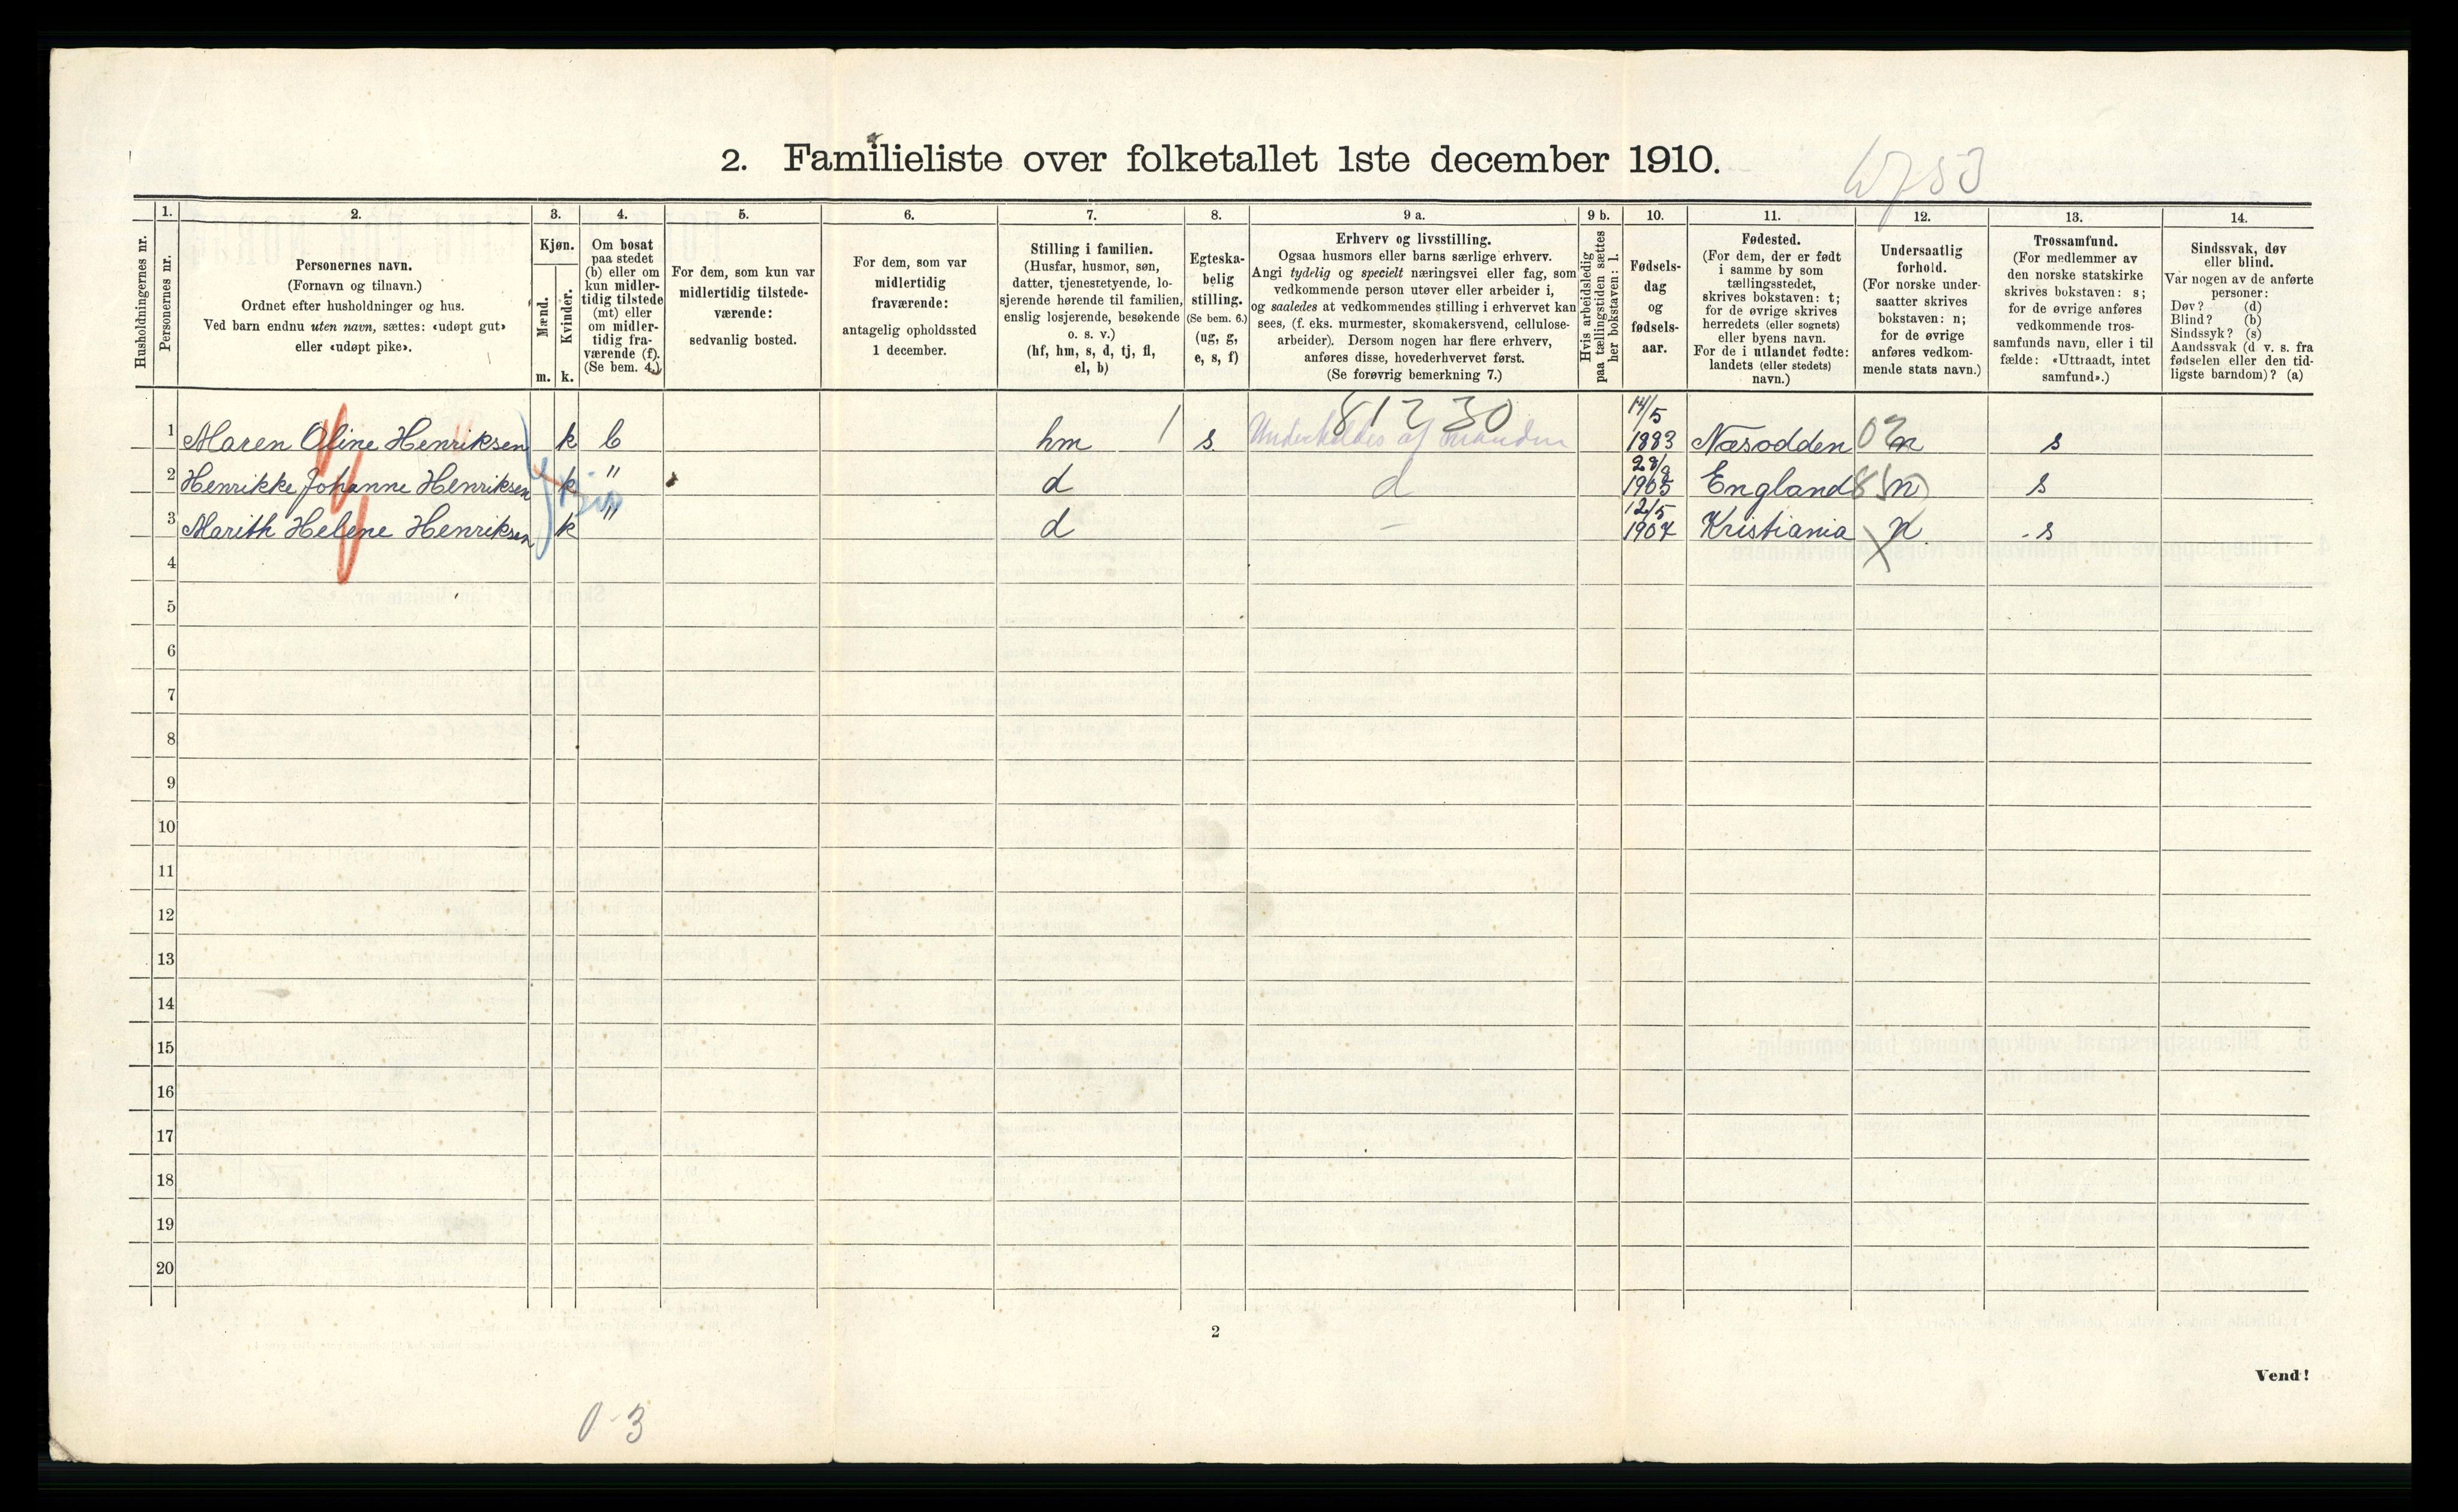 2. Familieliste over folketallet 1ste december 1910.
6753
Husholdningernes nr.
1.
Personernes nr.
2.
Personernes navn.
(Fornavn og tilnavn.)
Ordnet efter husholdninger og hus.
Ved barn endnu uten navn, sættes: «udøpt gut»
eller «udøpt pike».
3.
Kjøn.
Mænd.
Kvinder.
m. k.
4.
Om bosat
paa stedet
(b) eller om
kun midler-
tidig tilstede
(mt) eller
om midler-
tidig fra-
værende (f).
(Se bem. 4.)
5.
For dem, som kun var
midlertidig tilstede-
værende:
sedvanlig bosted.
6.
For dem, som var
midlertidig
fraværende:
antagelig opholdssted
1 december.
7.
Stilling i familien.
(Husfar, husmor, søn,
datter, tjenestetyende, lo-
sjerende hørende til familien,
enslig losjerende, besøkende
o. s. v.)
(hf, hm, s, d, tj, fl,
el, b)
8.
Egteska-
belig
stilling.
(Se bem. 6.)
(ug, g,
e, s, f)
9 a.
Erhverv og livsstilling.
Ogsaa husmors eller barns særlige erhverv.
Angi tydelig og specielt næringsvei eller fag, som
vedkommende person utøver eller arbeider i,
og saaledes at vedkommendes stilling i erhvervet kan
sees, (f. eks. murmester, skomakersvend, cellulose-
arbeider). Dersom nogen har flere erhverv,
anføres disse, hovederhvervet først.
(Se forøvrig bemerkning 7.)
9 b.
Hvis arbeidsledig
paa tællingstiden sættes
her bokstaven: l.
10.
Fødsels-
dag
og
fødsels-
aar.
11.
Fødested.
(For dem, der er født
i samme by som
tællingsstedet,
skrives bokstaven: t;
for de øvrige skrives
herredets (eller sognets)
eller byens navn.
For de i utlandet fødte:
landets (eller stedets)
navn.)
12.
Undersaatlig
forhold.
(For norske under-
saatter skrives
bokstaven: n;
for de øvrige
anføres vedkom-
mende stats navn.)
13.
Trossamfund.
(For medlemmer av
den norske statskirke
skrives bokstaven: s;
for de øvrige anføres
vedkommende tros-
samfunds navn, eller i til
fælde: «Uttraadt, intet
samfund».)
14.
Sindssvak, døv
eller blind.
Var nogen av de anførte
personer:
Døv? (d)
Blind? (b)
Sindssyk? (s)
Aandssvak (d v. s. fra
fødselen eller den tid-
ligste barndom)? (a)
1 Maren Oline Henriksen k b hm 1 s. Underholdes af manden 81230 14/5 1883 Næsodden 02 n s
2 Henrikke Johanne Henriksen k " d d 28/9 1905 England n s
3 Marith Helene Henriksen k " d – 12/5 1907 Kristiania n. s
4
5
6
7
8
9
10
11
12
13
14
15
16
17
18
19
20
2
Vend!
0-3